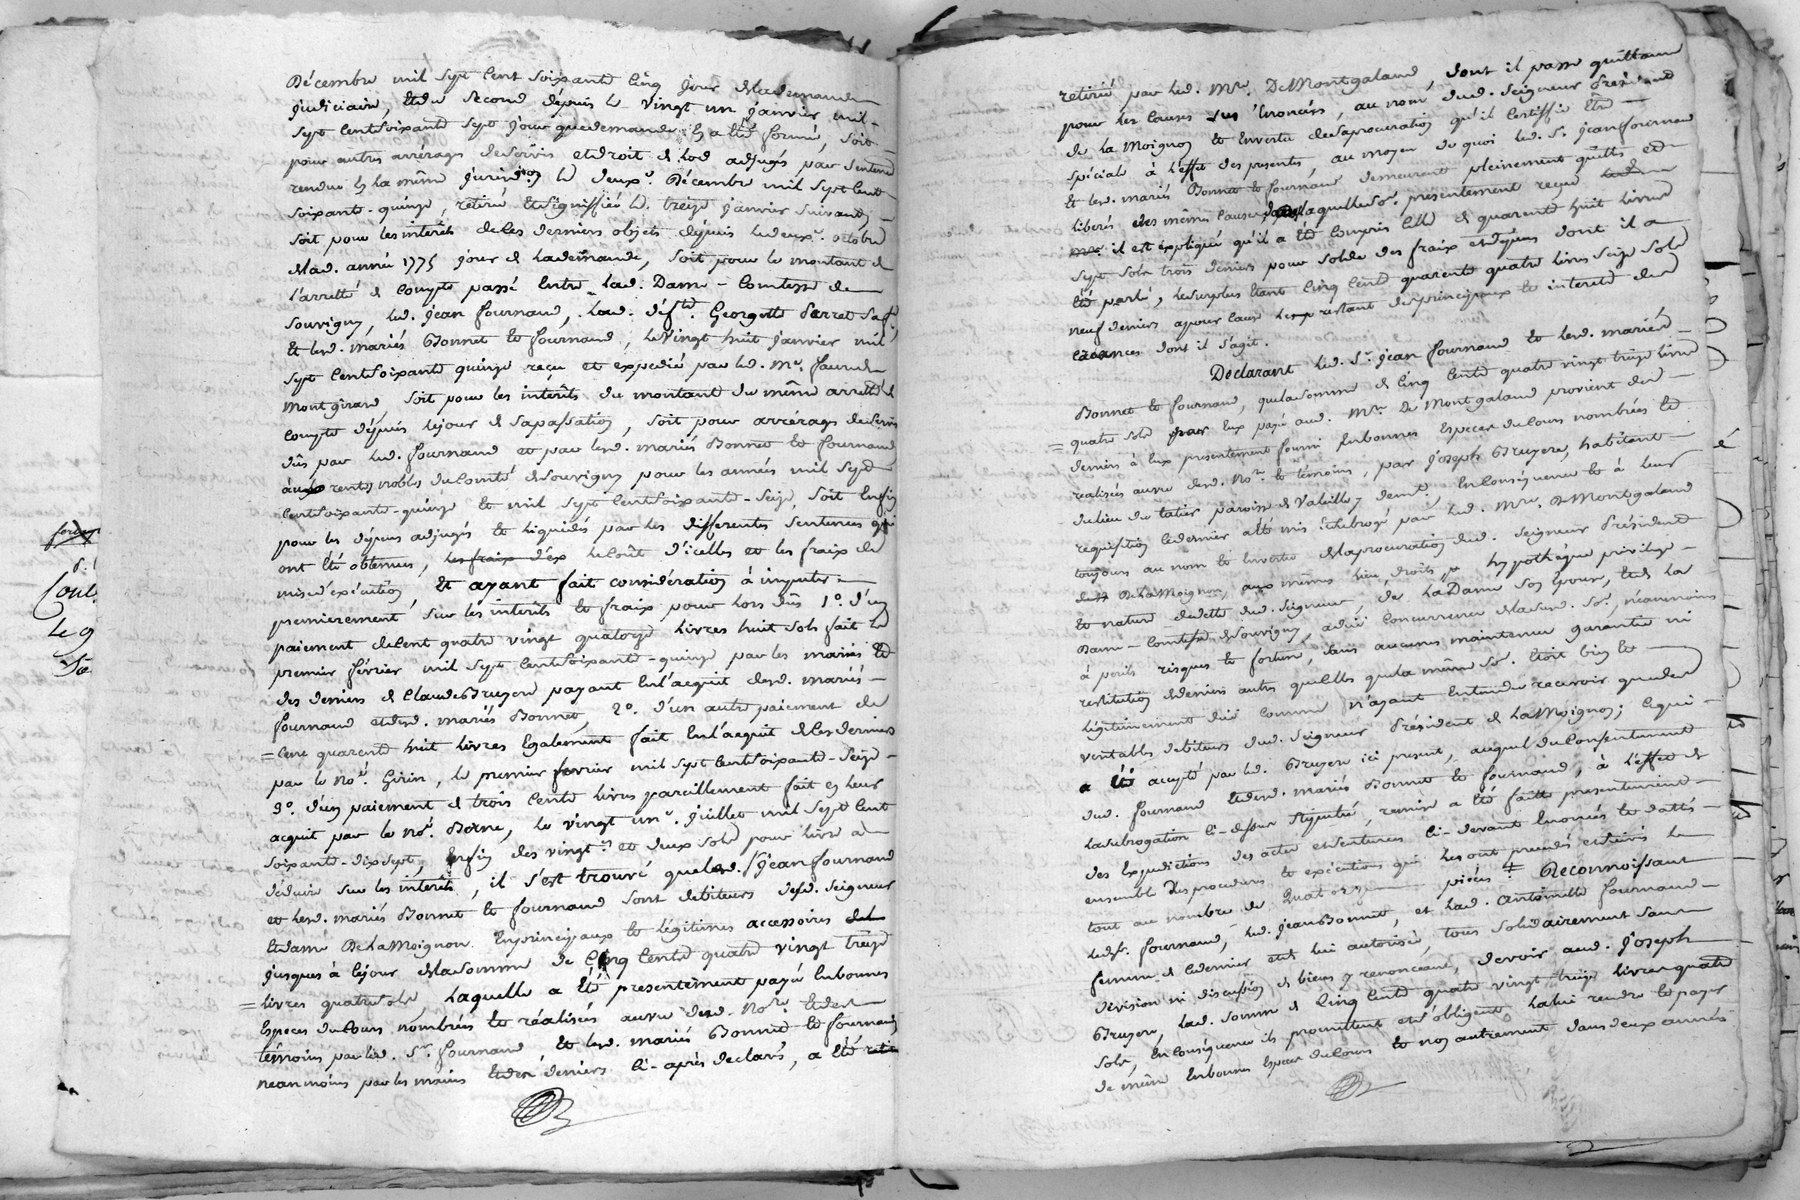 Décembre mil sept cent soixante cinq jour de la demande
judiciaire, et du second depuis le vingt un janvier mil
sept cent soixante sept jour que demande en a été formé, soit
pour autres arrérages de servis et droit de lod adjugés par sentence
rendue en la même jurisdion le deuxe. Décembre mil sept cent
soixante-quinze, retirée et signiffiée le treize janvier suivant,
soit pour les interêts de ces derniers objets depuis led. deuxe. octobre
de lad. année 1775 jour de la demande, soit pour le montant de
l'arretté de compte passé entre lad. Dame Comtesse de
Souvigny, led. jean fournand, lad. deffte. Georgette Perret sa fe.
et lesd. mariés Bonnet et fournand, le vingt huit janvier mil
sept cent soixante quinze reçu et expedié par led. Me.
Montgirard soit pour les interêts du montant du même arretté de
compte depuis le jour de sa passation, soit pour arrérages de servis
dûs par led. fournand et par lesd. mariés Bonnet et fournand
aux rentes nobles du Comté de Souvigny pour les années mil sept
cent soixante-quinze et mil sept cent soixante-seize, soit enfin
pour les dépens adjugés et liquidés par les differentes sentences qui
ont été obtenues, les fraix d'ex le coût d'icelles et les fraix de
mise d'exécution, et ayant fait considération à imputer
premierement sur les interêts et fraix pour lors dûs 1°. d'un
paiement de cent quatre vingt quatorze livres huit sols fait le
premier février mil sept cent soixante-quinze par les mains et
des deniers de Claude Bruyere payant en l'acquit desd. mariés
fournand et desd. mariés Bonnet, 2°. d'un autre paiement de
= cent quarante huit livres egalement fait en l'acquit de ces derniers
par le Nore. Girin, le premier fevrier mil sept cent soixante-seize
3°. d'un paiement de trois cents livres pareillement fait en leur
acquit par le nore. Borne, le vingt une. juillet mil sept cent
soixante-dix sept, enfin des vingt.es et deux sols pour livre à
déduire sur les interêts, il s'est trouvé que led. Sr. jean fournand
et lesd. mariés Bonnet et fournand sont debiteurs desd. seigneur
et dame De la Moignon en principaux et légitimes accessoires
jusques à ce jour de la somme de cinq cents quatre vingt treize
= livres quatre sols, laquelle a été presentement payé en bonnes
especes du cours nombrées et réalisées au vu desd. Nores. et des
témoins par led. Sr. fournand et lesd. mariés Bonnet et fournand
neanmoins par les mains et des deniers ci-après declarés, a été
retirée par led. Mre. De Montgaland, dont il passe quittance
pour les causes sus énoncées, au nom dud. seigneur Président
de la Moignon et en vertu de sa procuration qu'il certiffie être
spéciale à l'effet des presentes, au moyen de quoi led. Sr. jean fournand
et lesd. mariés Bonnet et fournand demeurent pleinement quittes et
liberés des mêmes causes, dans laquelle se. presentement reçue
il est expliqué qu'il a été compris celle de quarante huit livres
sept sols trois deniers pour solde des fraix et dépens dont il a
été parlé, le surplus étant cinq cents quarante quatre livres seize sols
neuf deniers ayant cause le restant des principaux et interets des
créances dont il s'agit.
Declarant led. Sr. jean fournand et lesd. mariés
Bonnet et fournand, que la somme de cinq cents quatre vingt treize livres
= quatre sols par eux payé aud. Mre. De Montgaland provient des
deniers à eux presentement fourni en bonnes especes du cours nombrées et
réalisées au vu desd. Nores. et témoins, par joseph Bruyere, habitant
du lieu du tatier paroisse de Valeille, demt. en consequence et à leur
requisition ce dernier a été mis et subrogé par led. Mre. De Montgaland
toujours au nom et en vertu de la procuration dud. seigneur Président
De la Moignon, aux mêmes lieu, droits, hypothèque privilege
et nature de dette dud. seigneur, de la Dame son epouse, et de la
Dame Comtesse de Souvigny, à dûe concurrence de la susd. se., néanmoins
à perils risques et fortune, sans aucune maintenue garantie ni
restitution de deniers autres qu'elles que la même se. étoit bien et
légitimement dûe comme n'ayant entendu recevoir que des
veritables debiteurs dud. seigneur Président de la Moignon; ce qui
a été accepté par led. Bruyere ici present, auquel du consentement
dud. fournand et desd. mariés Bonnet et fournand, à l'effet de
la subrogation ci-dessus stipulée, remise a été faitte presentement
des expeditions des actes et sentences ci-devant énoncés et dattés
ensemble des procedures et exécutions qui les ont precedés et suivis le
tout au nombre de Quatorze pièces ‡ Reconnoissant
led. fournand, led. jean Bonnet, et lad. antoinette fournand
femme de ce dernier et de lui autorisée, tous solidairement sans
division ni discussion de biens y renonceant, devoir aud. joseph
Bruyere, lad. somme de cinq cents quatre vingt treize livres quatre
sols, en consequence ils promettent et s'obligent, la lui rendre et payer
de même en bonnes especes du cours et non autrement dans deux années